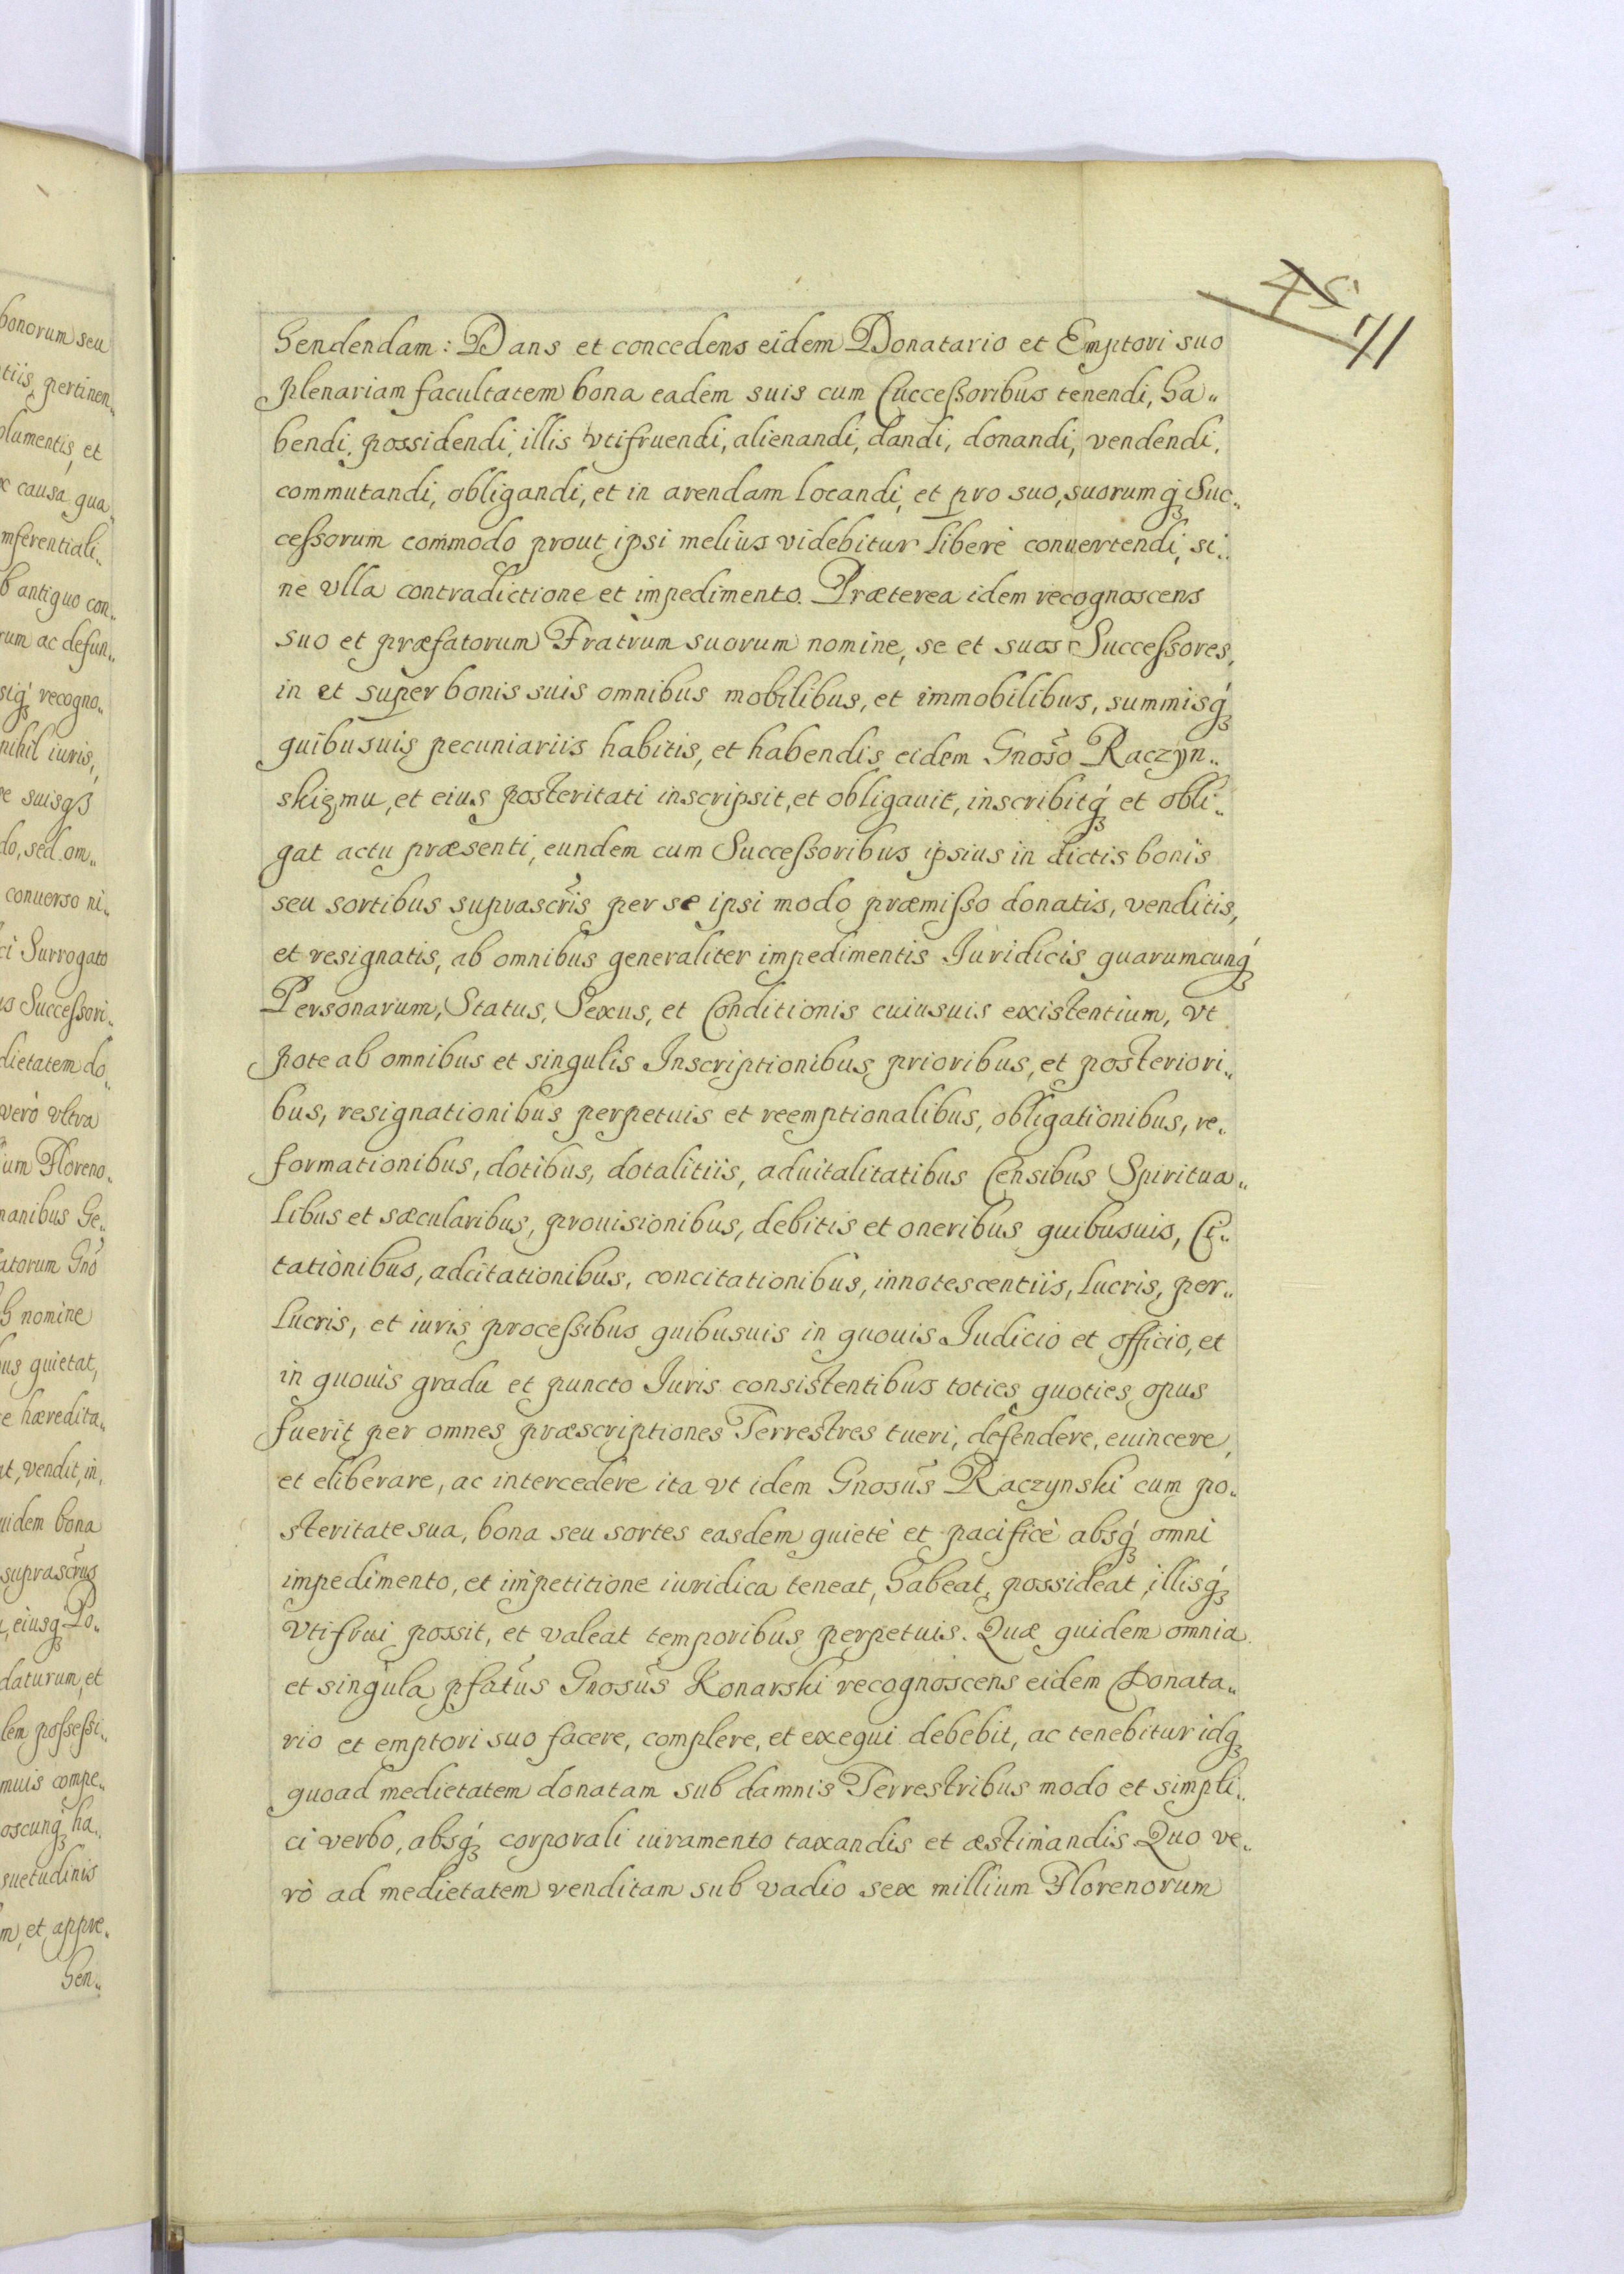 bonorum seu
tiis, pertinen„
lumentis, et
causa qua„
mferentiali„
b antiquo con„
rum ac defun„
sigꝫ recogno„
nihil iuris,
e suisqꝫ
do, sed om„
conuerso ni„
ci Surrogato
is Successori„
dietatem do„
verò vltra
um Floreno„
manibus Ge„
atorum Gno
nomine
us quietat,
e hæredita„
at, vendit, in„
uidem bona
suprascrus
eiusqꝫ Po„
daturum, et
lem possessi„
muis compe„
oscunqꝫ ha„
suetudinis
m, et appre„
hen„
45
71
hendendam: Dans et concedens eidem Donatario et Emptori suo
plenariam facultatem bona eadem suis cum Successoribus tenendi, ha„
bendi, possidendi, illis vtifruendi, alienandi, dandi, donandi, vendendi,
commutandi, obligandi, et in arendam locandi, et pro suo, suorumqꝫ Suc„
cessorum commodo prout ipsi melius videbitur liberè conuertendi, si„
ne vlla contradictione et impedimento. Præterea idem recognoscens
suo et præfatorum Fratrum suorum nomine, se et suos Successores,
in et super bonis suis omnibus mobilibus, et immobilibus, summisqꝫ
quibusuis pecuniariis habitis, et habendis eidem Gnoso Raczyn„
skiemu, et eius posteritati inscripsit, et obligauit, inscribitqꝫ et obli„
gat actu præsenti, eundem cum Successoribus ipsius in dictis bonis
seu sortibus suprascris per se ipsi modo præmisso donatis, venditis,
et resignatis, ab omnibus generaliter impedimentis Iuridicis quarumcunqꝫ
Personarum, Status, Sexus, et Conditionis cuiusuis existentium, vt
pote ab omnibus et singulis Inscriptionibus prioribus, et posteriori„
bus, resignationibus perpetuis et reemptionalibus, obligationibus, re„
formationibus, dotibus, dotalitiis, aduitalitatibus Censibus Spiritua„
libus et sæcularibus, prouisionibus, debitis et oneribus quibusuis, Ci„
tationibus, adcitationibus, concitationibus, innotescentiis, lucris, per„
lucris, et iuris processibus quibusuis in quouis Iudicio et officio, et
in quouis gradu et puncto Iuris consistentibus toties quoties opus
fuerit per omnes præscriptiones Terrestres tueri, defendere, euincere,
et eliberare, ac intercedere ita vt idem Gnosus Raczynski cum po„
steritate sua, bona seu sortes easdem quietè et pacificè absqꝫ omni
impedimento, et impetitione iuridica teneat, habeat, possideat, illisqꝫ
vtifrui possit, et valeat temporibus perpetuis. Quæ quidem omnia
et singula pfatus Gnosus Konarski recognoscens eidem Donata„
rio et emptori suo facere, complere, et exequi debebit, ac tenebitur idqꝫ
quoad medietatem donatam sub damnis Terrestribus modo et simpli„
ci verbo, absqꝫ corporali iuramento taxandis et æstimandis Quo ve„
rò ad medietatem venditam sub vadio sex millium Florenorum